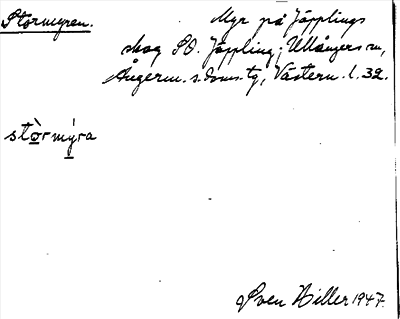 Stormyren.
Myr på Jäpplings
skog SO. Jäppling, Ullångers sn,
Ångerm. s. doms. tg, Västern. l. 32.
stòrmýra
Sven Hiller 1947.